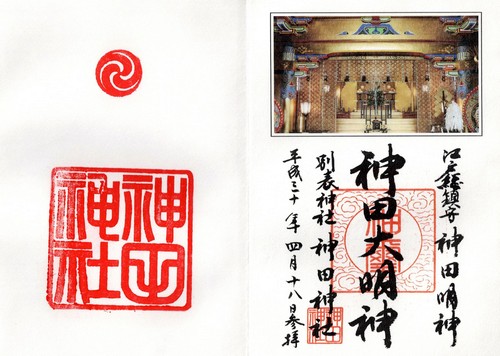 江戸総鎮守 神田明神
神田大明神
別表神社 神田神社
平成三十年四月十八日参拝
神田神社